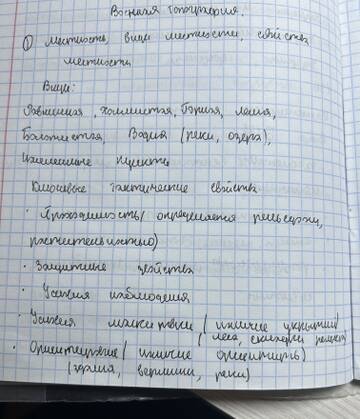 Военная топография.
① местность, виды местности, свойства
местности
Виды:
Равнинная, холмистая, Горная, лесная,
Болотистая, Водная (реки, озера),
Населенные пункты
Ключевые тактические свойства
· Проходимость (определяется рельефом,
растительностью)
· Защитные свойства
· Условия наблюдения
· Условия маскировки (наличие укрытий
леса, складки рельефа
· Ориентирование (наличие ориентир)
(здания, вершины, реки)